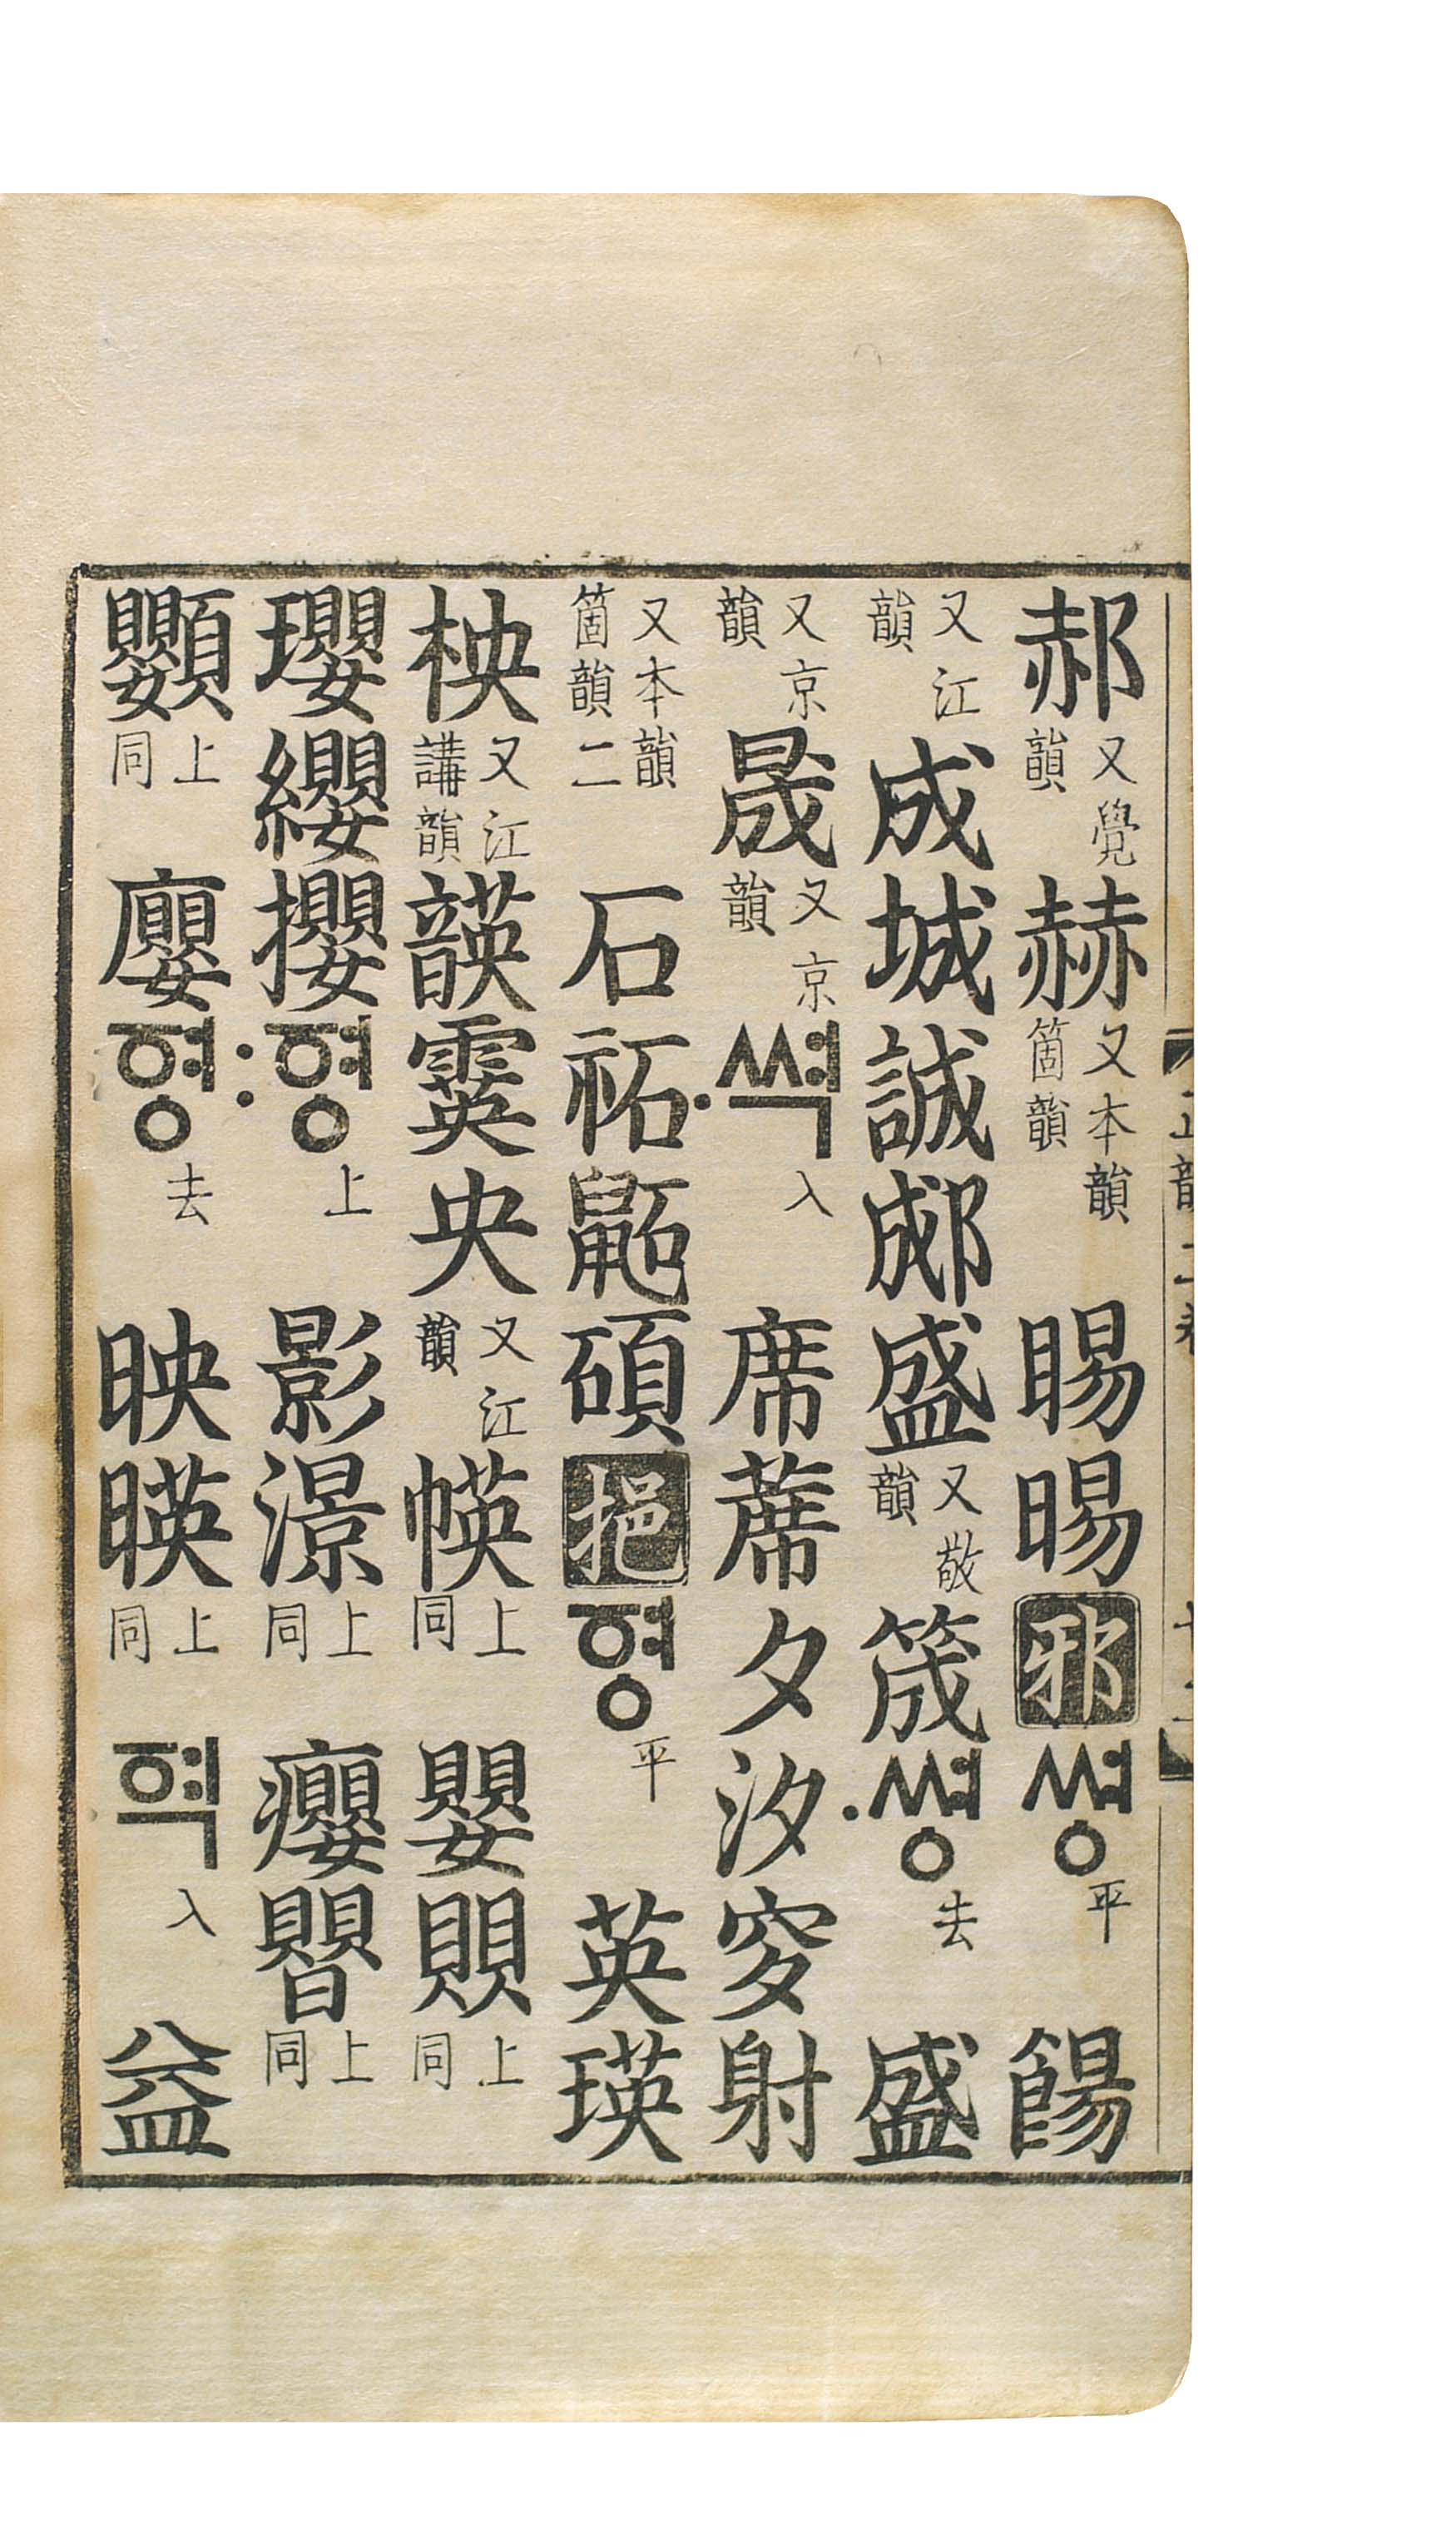 郝又覺韻赫又本韻箇韻睗晹邪쎠ᇰ平餳
又江韻成城誠郕盛又敬韻筬·쎠ᇰ去盛
又京韻晟又京韻·쎡入席蓆夕汐穸射
又本韻箇韻二石祏鼫碩挹ᅙᅧᇰ平英瑛
柍又江講韻韺霙央又江韻㡕上同嬰賏上同
瓔纓攖:ᅙᅧᇰ上影澋上同癭上同
上同廮ᅙᅧᇰ去映暎上同ᅙᅧᆨ入益